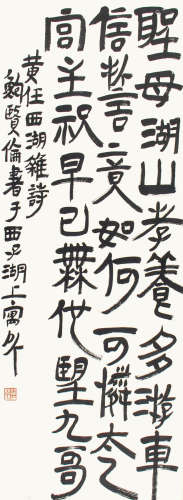 聖母湖山孝養多游車
信誓竟如何可憐太乙
宫主祝早已無代朢九哥
黄任西湖雜詩
鮑賢倫書于西子湖上寓所